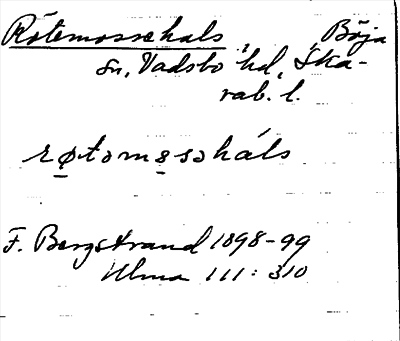 Rötemossehals, Böja
sn, Vadsbo hd, Ska-
rab. l.
røtəmɷsəháls
F. Bergstrand 1898-99
Ulma 111:310